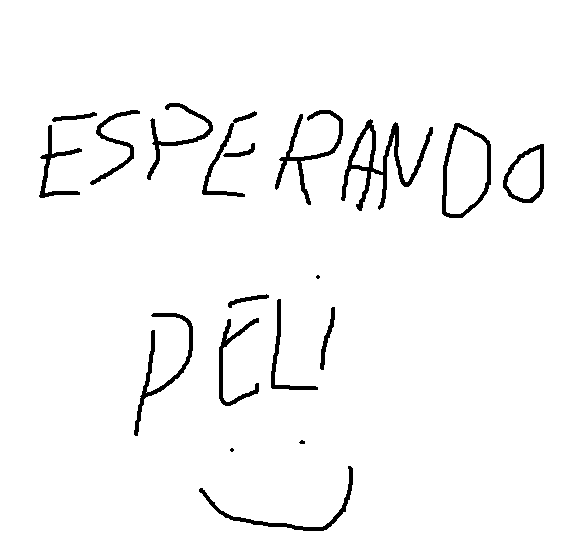 ESPERANDO
PELi